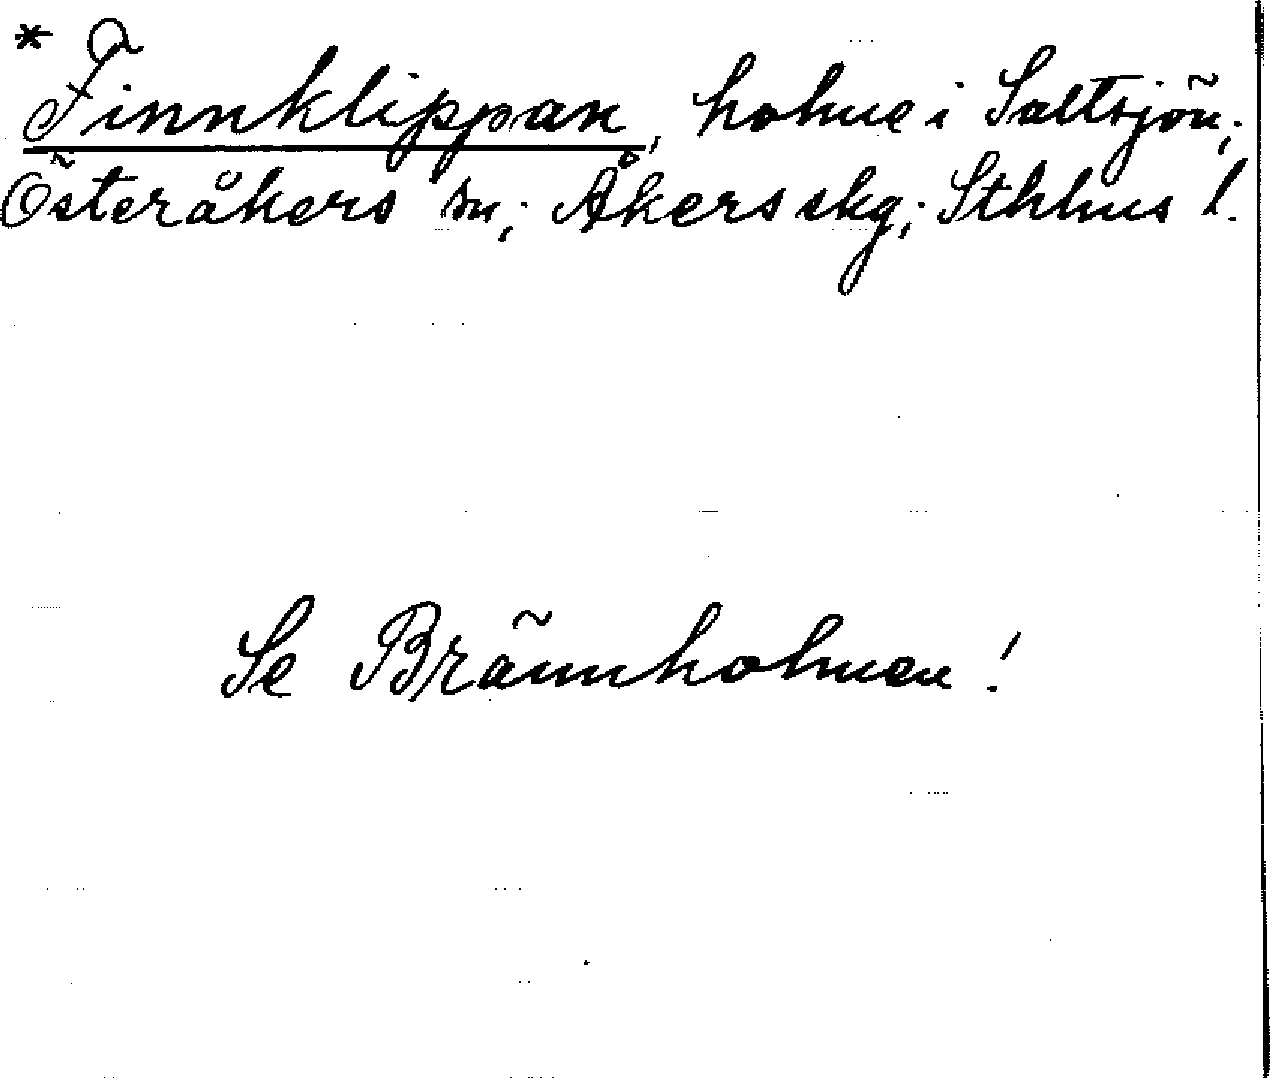 * Finnklippan, holme i Saltsjön;
Österåkers sn; Åkers skg; Sthlms l.
Se Brännholmen!